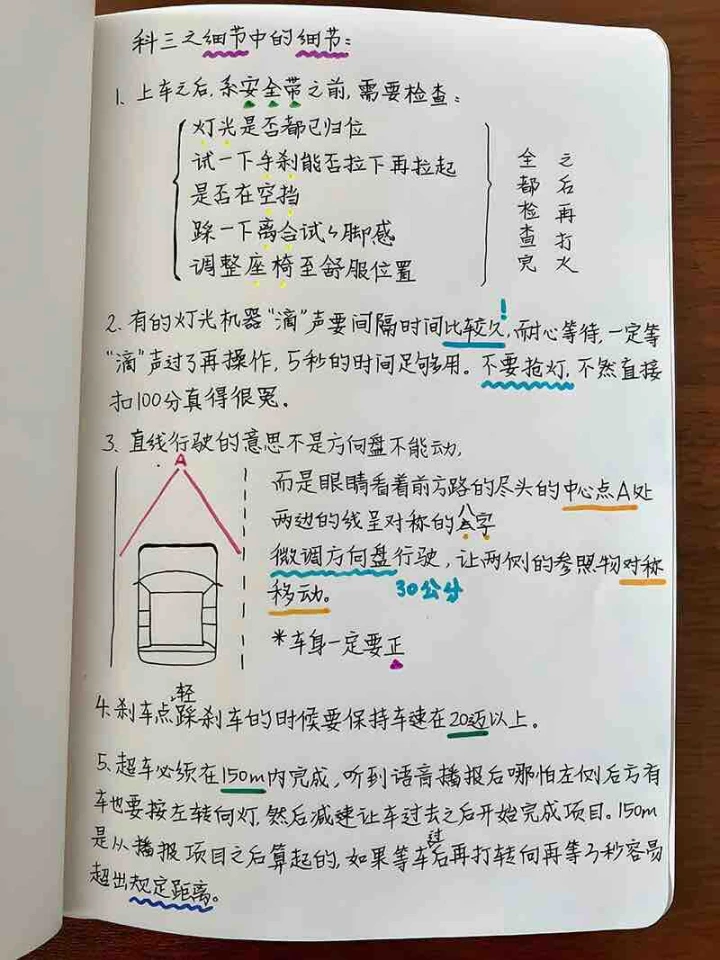 科三之细节中的细节:
1. 上车之后,系安全带之前,需要检查:
灯光是否都已归位
试一下手刹能否拉下再拉起
是否在空挡
踩一下离合试々脚感
调整座椅至舒服位置
全都检查完
之后再打火
2. 有的灯光机器“滴”声要间隔时间比较久!,耐心等待,一定等
“滴”声过了再操作,5秒的时间足够用。不要抢灯,不然直接
扣100分真得很冤。
3. 直线行驶的意思不是方向盘不能动,
A
而是眼睛看着前方路的尽头的中心点A处
两边的线呈对称的八字
微调方向盘行驶,让两侧的参照物对称
移动。 30公分
*车身一定要正
4. 刹车点,轻踩刹车的时候要保持车速在20迈以上。
5. 超车必须在150m内完成,听到语音播报后哪怕左侧后方有
车也要按左转向灯.然后减速让车过去之后开始完成项目。150m
是从播报项目之后算起的,如果等车过后再打转向再等3秒容易
超出规定距离。